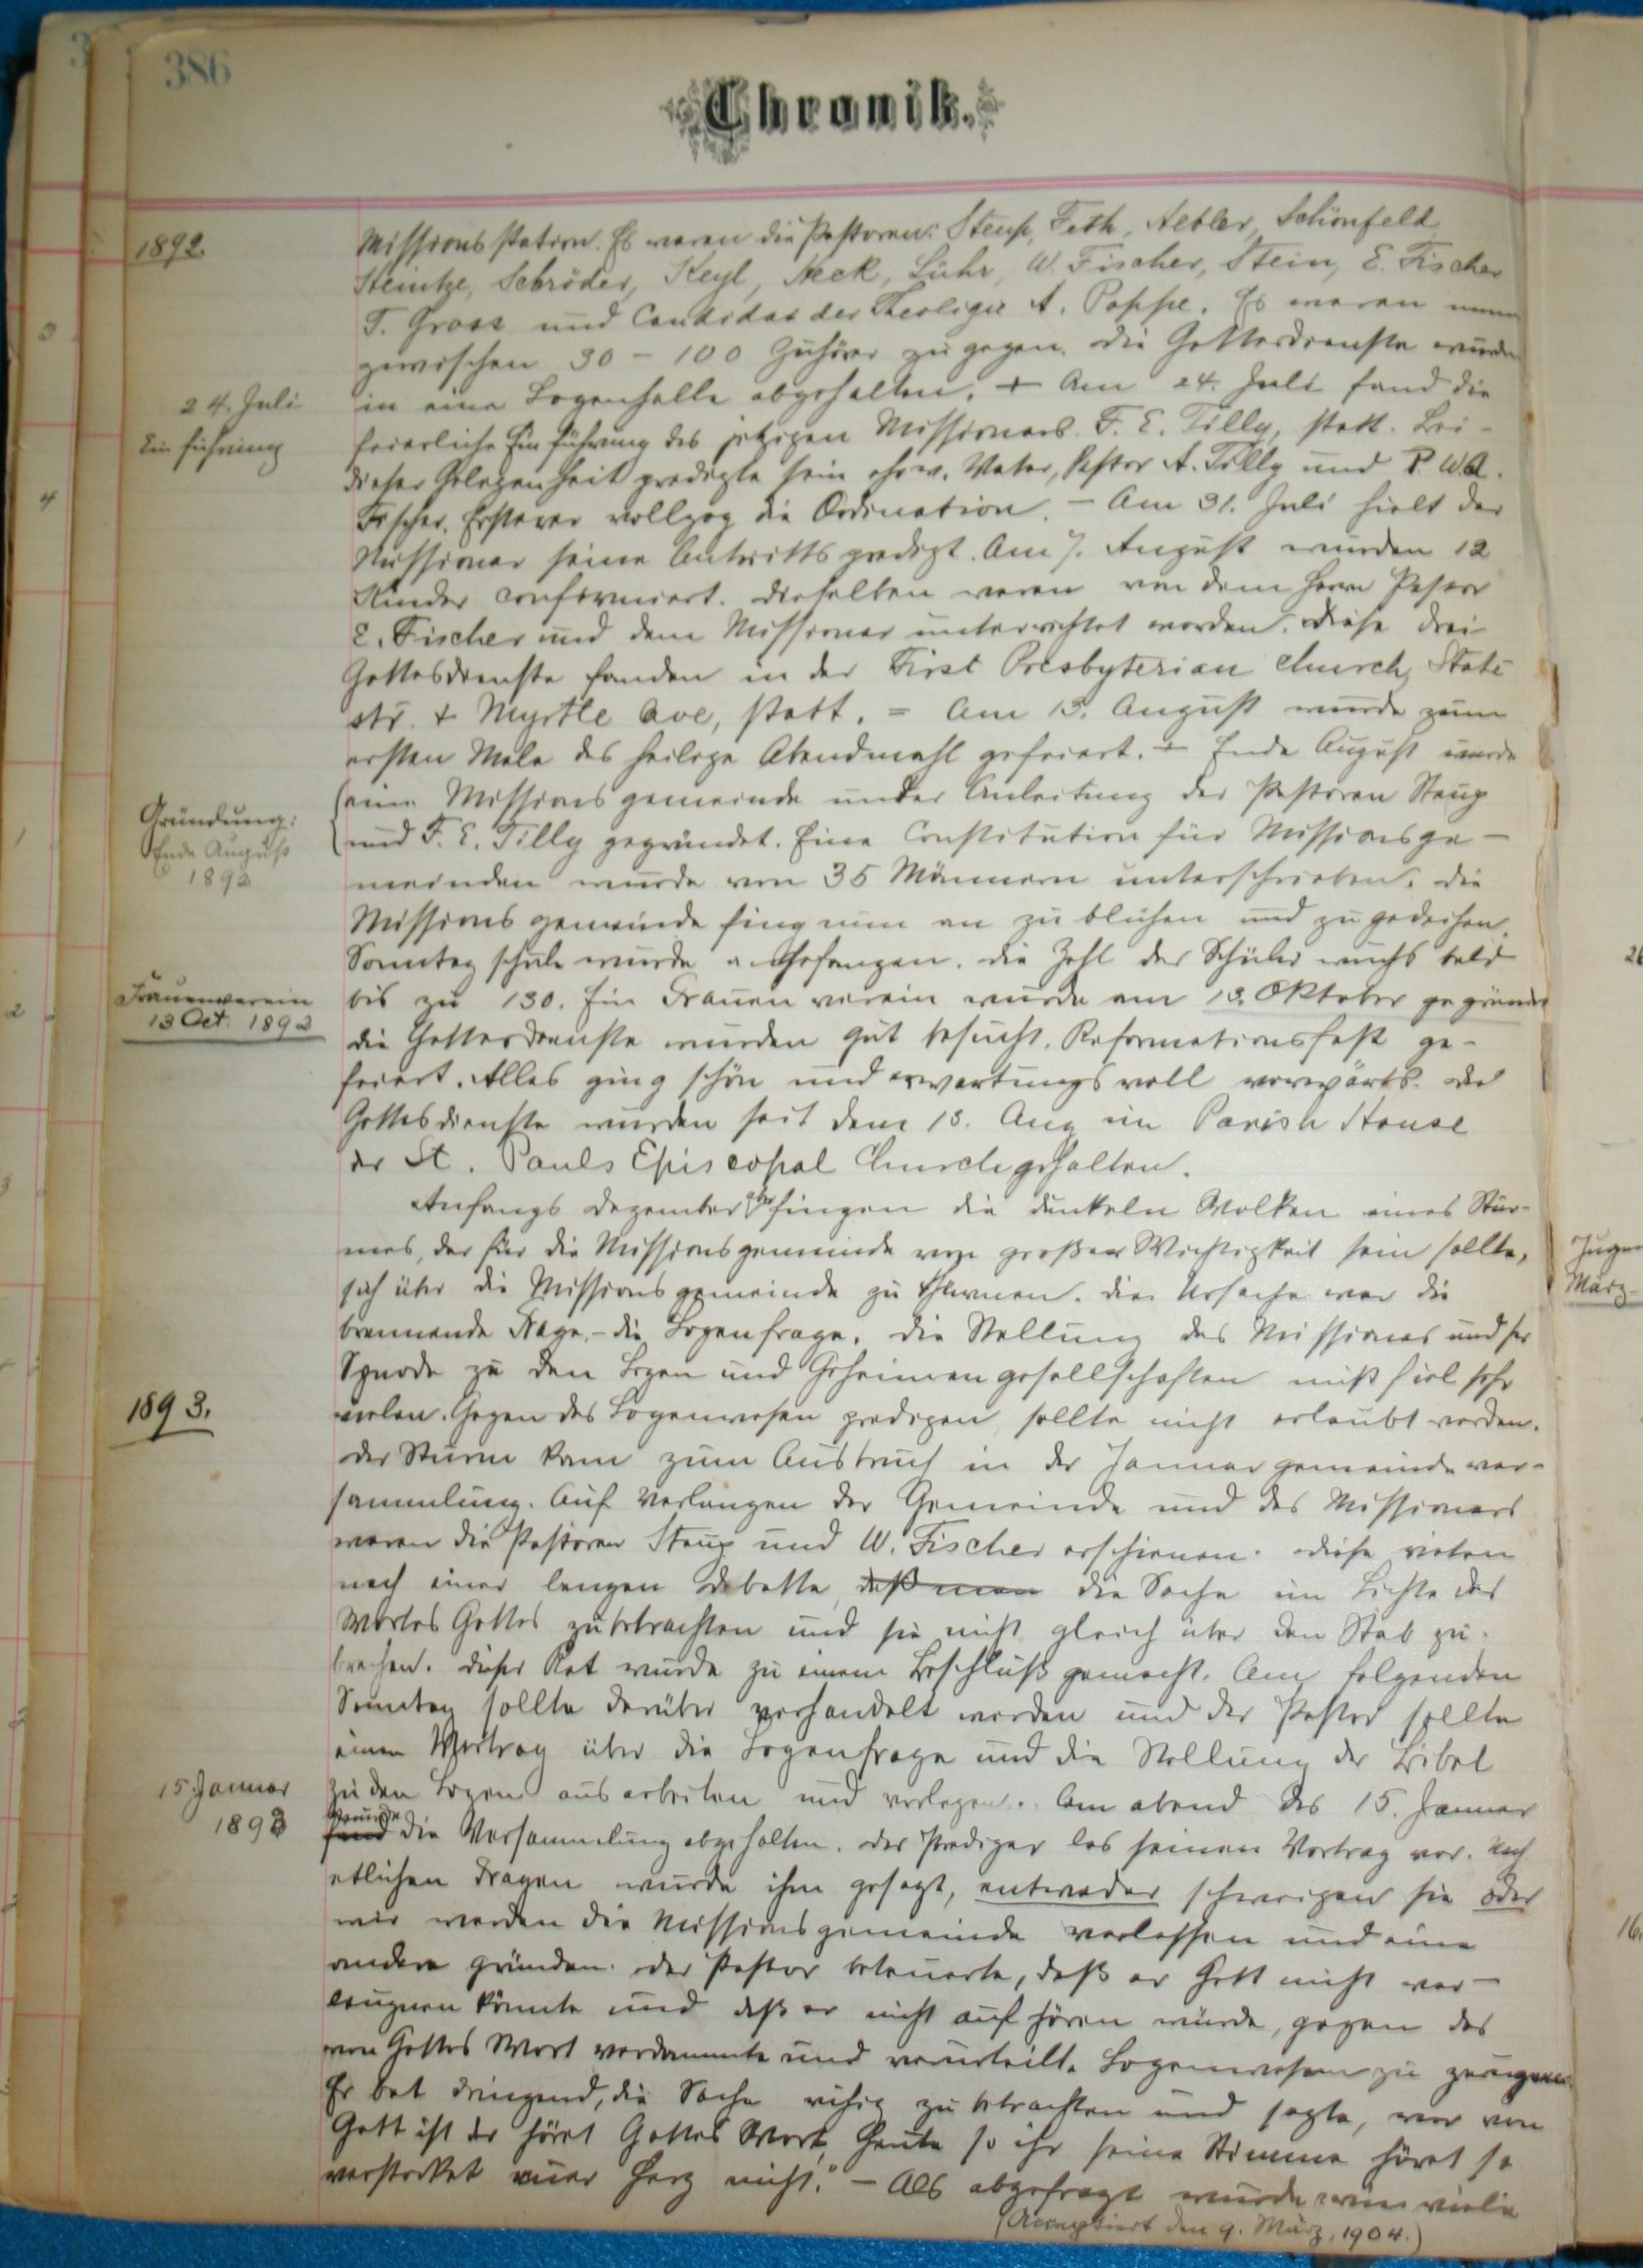 386
Chronik.
1892.
Missionsstation. Es waren die Pastoren: Steup, Feth, Aebler, Schönfeld
Steintze, Schröder, Keyl, Heck, Lühr, W. Fischer, Stein, E. Fischer
T. Gross und Candidat der Theologie A. Poppe. Es waren
zwischen 30 - 100 Zuhörer zugegen. Die Gottesdienste wurden
24. Juli
in eine Logenhalle abgehalten. + Am 24. Juli fand die
Einführung
feierliche Einführung des jetzigen Missionars F. E. Tilly, statt. Bei-
dieser Gelegenheit predigte sein ehrw. Vater, Pastor A. Tilly und P. W.A.
Fischer. Ersterer vollzog die Ordination. - Am 31. Juli hielt der
Missionar seine Antrittspredigt. Am 7. August wurden 12
Kinder confirmiert. Dieselben waren von dem Herrn Pastor
E. Fischer und dem Missionar unterrichtet worden. Diese drei
Gottesdienste fanden in der First Presbyterian Church, State
str. + Myrtle Ave, statt. = Am 15. August wurde zum
ersten Male das heilige Abendmahl gefeiert. + Ende August wurde
Gründung:
eine Missionsgemeinde under Anleitung der Pastoren Steup
Ende August
und F. E. Tilly gegründet. Eine Constitution für Missionsge-
1892
meinden wurde von 35 Männern unterschrieben. Die
Missionsgemeinde fing nun an zu blühen und zu gedeihen.
Sonntagschule wurde angefangen. Die Zahl der Schüler wuchs bald
Frauenverein
bis zu 130. Ein Frauenverein wurde am 13. Oktober gegründet
13 Oct. 1892
die Gottesdienste wurden gut besucht. Reformationsfest ge-
feiert. Alles ging schön und erwartungsvoll vorwärts. Die
Gottesdienste wurden seit dem 15. Aug im Parish House
der St. Pauls Episcopal Church gehalten.
Anfangs Dezember aber fingen die dunkeln Wolken eines Stur-
mes, der für die Missionsgemeinde von großer Wichtigkeit sein sollte,
sich über die Missionsgemeinde zu thürmen. Die Ursache war die
brennende Frage, - die Logenfrage. Die Stellung des Missionars und der
Synode zu den Logen und Geheimengesellschaften mißfiel sehr
1893.
vielen. Gegen das Logenwesen predigen, sollte nicht erlaubt werden.
Der Sturm kam zum Ausbruch in der Januargemeindever-
sammlung. Auf Verlangen der Gemeinde und des Missionars
waren die Pastoren Steup und W. Fischer erschienen. Diese rieten
nach einer langen Debatte, daß man die Sache im Lichte des
Wortes Gottes zu betrachten und sie nicht gleich über den Stab zu
brechen. Dieser Rat wurde zu einem Beschluß gemacht. Am folgenden
Sonntag sollte darüber verhandelt werden und der Pastor sollte
einen Vortrag über die Logenfrage und die Stellung der Bibel
15. Januar
zu den Logen ausarbeiten und vorlegen. Am abend des 15. Januar
1893
wurde
fand die Versammlung abgehalten. Der Prediger las seinen Vortrag vor. Nach
etlichen Fragen wurde ihm gesagt, entweder schweigen sie oder
wir werden die Missionsgemeinde verlassen und eine
andere gründen. Der Pastor beteuerte, daß er Gott nicht ver-
leugnen könnte und daß er nicht aufhören würde, gegen das
von Gottes Wort verdammte und verurteilte Logenwesen zu zeugen.
Er bat dringend, die Sache ruhig zu betrachten und sagte, wer von
Gott ist der höret Gottes Wort, heute so ihr seine Stimme höret so
verstocket euer Herz nicht." - Als abgefragt wurde wie viele
(Acceptiert den 9. März, 1904.)